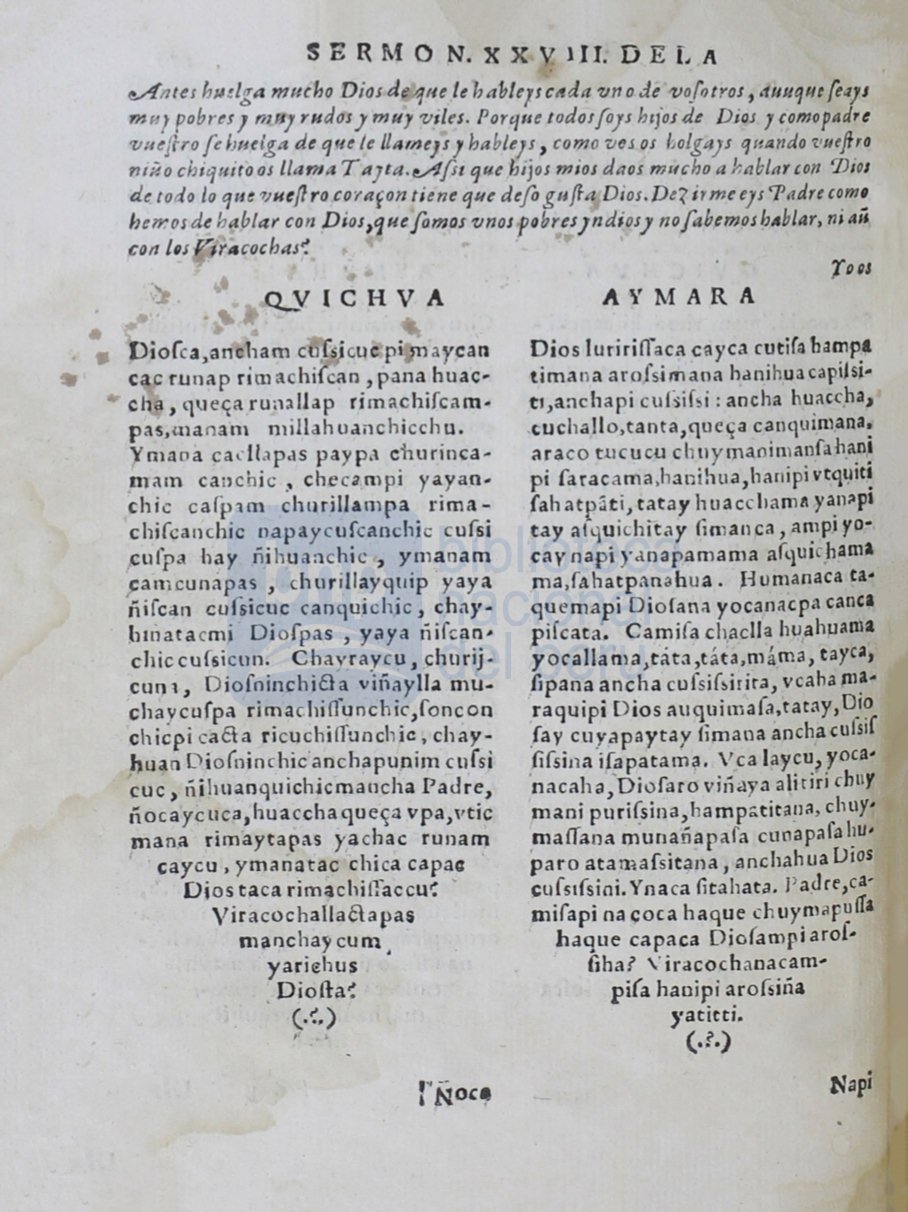 SERMON. XXVIII. DE LA
Antes huelga mucho Dios de que le hableys cada vno de vosotros, auuque seays
muy pobres y muy rudos y muy viles. Porque todos soys hijos de Dios y como padre
vuestro se huelga de que le llameys y hableys, como ves os holgays quando vuestro
niño chiquito os llama Tayta. Assi que hijos mios daos mucho a hablar con Dios
de todo lo que vuestro coraçon tiene que deso gusta Dios. Dezirmeeys Padre como
hemos de hablar con Dios, que somos vnos pobres yndios y no sabemos hablar, ni aũ
con los Viracochas?
Yo os
QVICHVA
Diosca, ancham cussicuc pi maycan
cac runap rimachiscan, pana huac-
cha, queça runallap rimachiscam-
pas, manam millahuanchicchu.
Ymana caellapas paypa churinca-
mam canchic, checampi yayan-
chic caspam churillampa rima-
chiscanchic napaycuscanchic cussi
cuspa hay ñihuanchic, ymanam
camcunapas, churillayquip yaya
ñiscan cussicuc canquichic, chay-
hinatacmi Diospas, yaya ñiscan-
chic cussicun. Chayraycu, churij-
cuna, Diosninchicta viñaylla mu-
chaycuspa rimachissunchic, soncon
chicpi cacta ricuchissunchic, chay-
huan Diosninchic anchapunim cussi
cuc, ñihuanquichicmancha Padre,
ñocaycuca, huacchaqueça vpa, vtic
mana rimaytapas yachac runam
caycu, ymanatac chica capac
Dios taca rimachissaccu?
Viracochallactapas
manchaycum
yariehus
Diosta?
(.?.)
Ñoca
AYMARA
Dios iuririssaca cayca cutisa hampa
timana arossimana hanihua capissi-
ti, anchapi cussissi: ancha huaccha,
cuchallo, tanta, queça canquimana,
araco tucucu chuymanimansa hani
pi saracama, hanihua, hanipi vtquiti
sahatpãti, tatay huacchama yanapi
tay asquichitay simanca, ampi yo-
cay napi yanapamama asquichama
ma, sahatpanahua. Humanaca ta-
quemapi Diosana yocanacpa canca
piscata. Camisa chaclla huahuama
yocallama, táta, táta, máma, tayca,
sipana ancha cussissirita, vcaha ma-
raquipi Dios auquimasa, tatay, Dio
say cuyapaytay simana ancha cussis
sissina isapatama. Vca laycu, yoca-
nacaha, Diosaro viñaya alitiri chuy
mani purissina, hampatitana, chuy-
massana munañapasa cunapasa hu-
paro atamassitana, anchahua Dios
cussissini. Ynaca sitahata. Padre, ca-
misapi na çoca haque chuymapussa
haque capaca Diosampi aros-
siha? Viracochanacam-
pisa hanipi arossiña
yatitti.
(.?.)
Napi
biblioteca
nacional
del perú